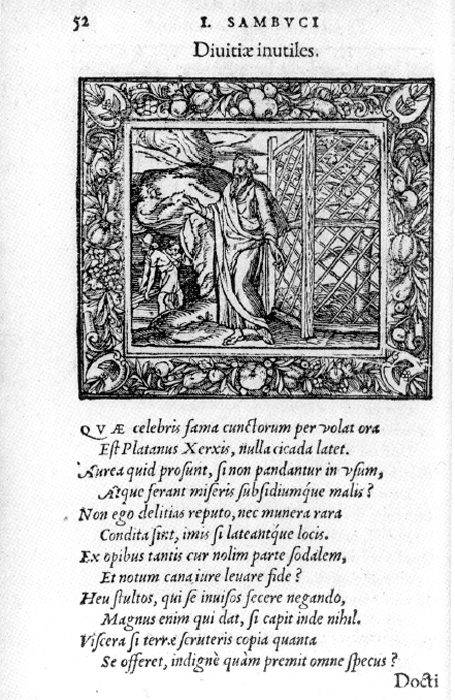 52 I. SAMBVCI
Diuitiæ inutiles.
QVAE celebris fama cunctorum per volat ora
Est Platanus Xerxis, nulla cicada latet.
Aurea quid prosunt, si non pandantur in vsum,
Atque ferant miseris subsidiumq́ue malis?
Non ego delitias reputo, nec munera rara
Condita sint, imis si lateantq́ue locis.
Ex opibus tantis cur nolim parte sodalem,
Et notum cana iure leuare fide?
Heu stultos, qui se inuisos fecere negando,
Magnus enim qui dat, si capit inde nihil.
Viscera si terræ scruteris copia quanta
Se offeret, indignè quàm premit omne specus?
Docti